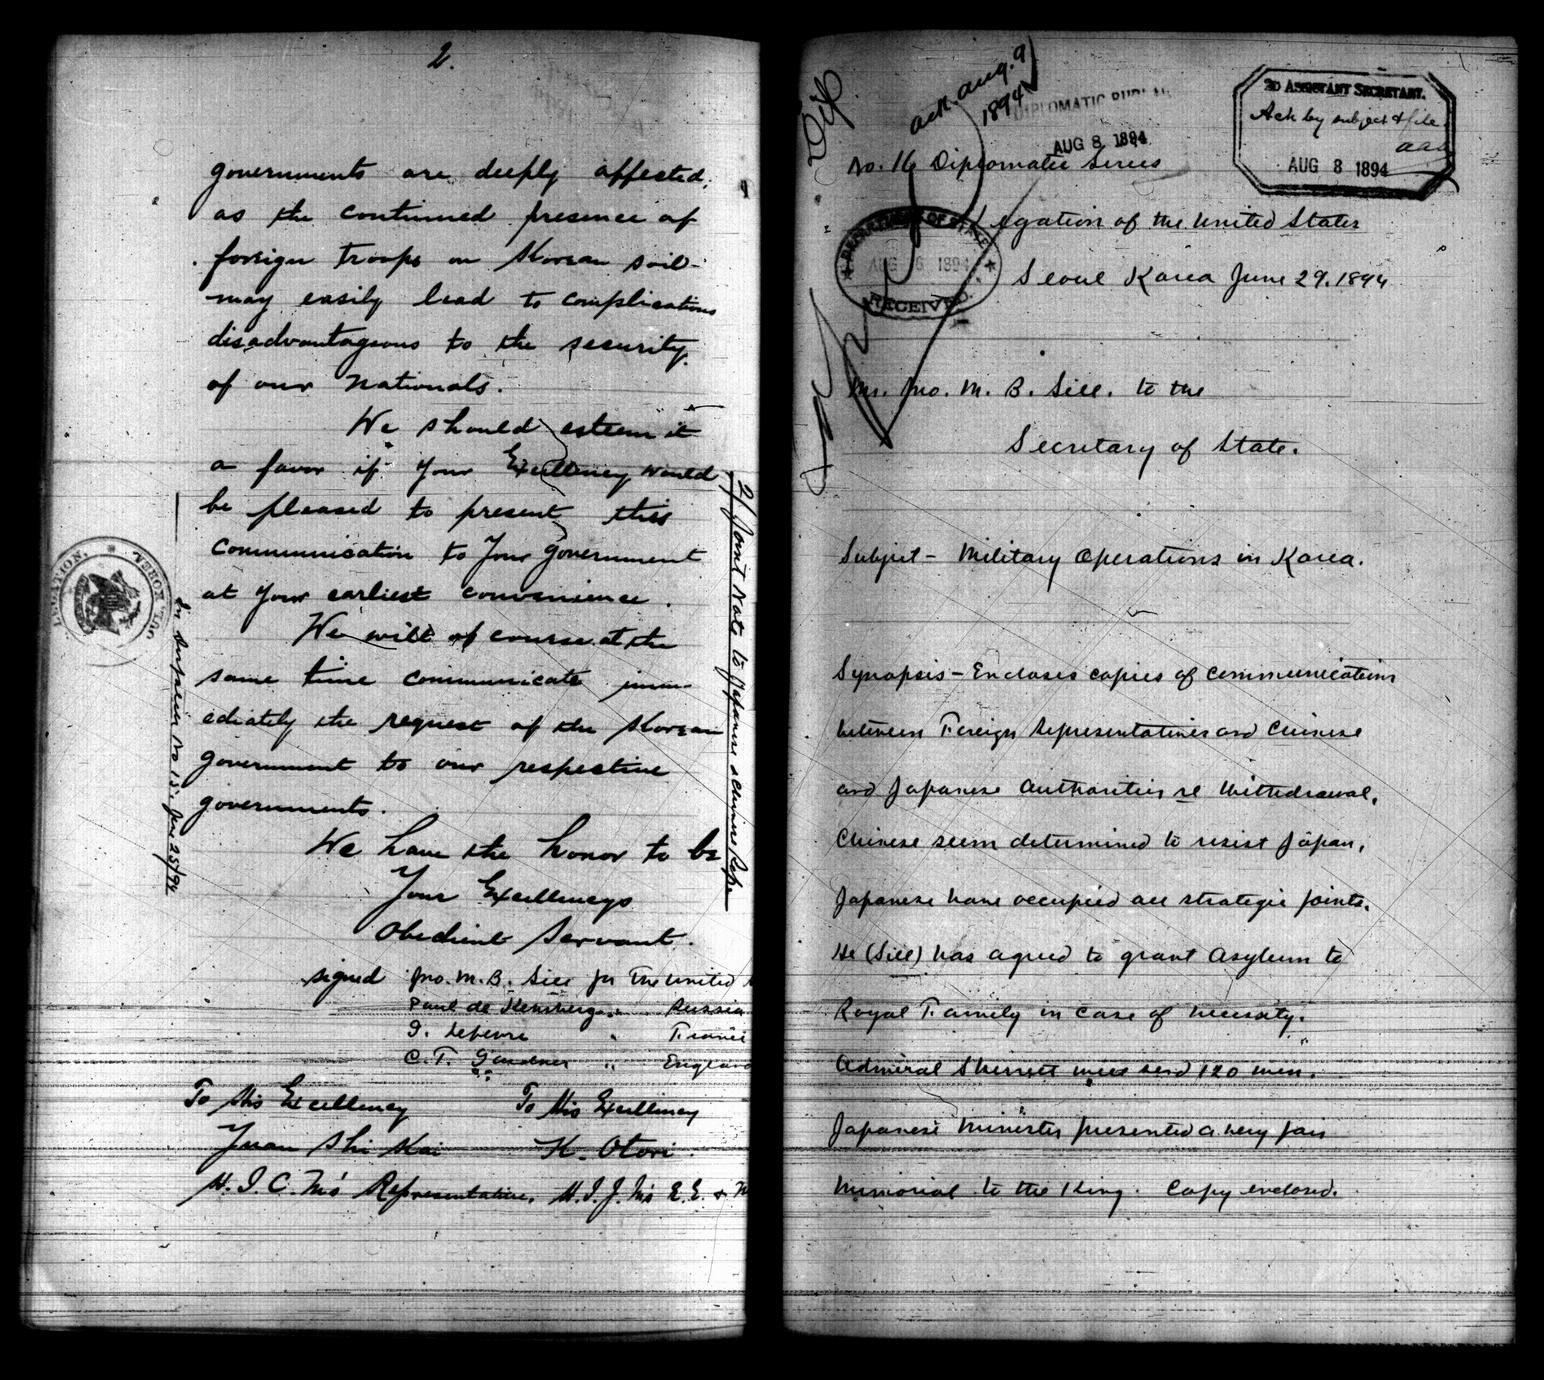 2.
governments are deeply affected,
as the continued presence of
foreign troops on Korean soil
may easily lead to complications
disadvantageous to the security
of our Nationals.
We should esteem it
a favor if Your Excellency would
be pleased to present this
communication to Your government
at Your earliest convenience.
We will of course at the
same time communicate imm-
ediately the request of the Korean
government to our respective
governments.
We have the honor to be
Your Excellencys
Obedient Servant.
signed Jno. M. B. Sill for The United
Paul de Kerberg " Russia
G. Lefevre " France
C. T. Gardner " England
To His Excellency To His Excellency
Yuan Shi Kai K. Otori.
H. I. C. M's Representative. H. I. J. M's E. E. &
2/ Joint Note to Japanese & Chinese Reps
in despatch No 15. June 25/94
LEGATION,
KOREA
Dip
ack. Aug. 9
1894
DIPLOMATIC BUREAU
AUG 8 1894
2D ASSISTANT SECRETARY.
Ack by subject & file.
aaa
AUG 8 1894
No. 16 Diplomatic Series
Legation of the United States
DEPARTMENT OF STATE
AUG 6 1894
RECEIVED.
Seoul Korea June 29. 1894
Mr. Jno. M. B. Sill. to the
Secretary of State.
Subject - Military Operations in Korea.
Synopsis - Encloses copies of communications
between Foreign Representatives and Chinese
and Japanese Authorities re Withdrawal.
Chinese seem determined to resist Japan.
Japanese have occupied all strategic points.
He (Sill) has agreed to grant Asylum to
Royal Family in case of necessity.
Admiral Skerrett will send 120 men.
Japanese Minister presented a very fair
Memorial to the King. Copy enclosed.